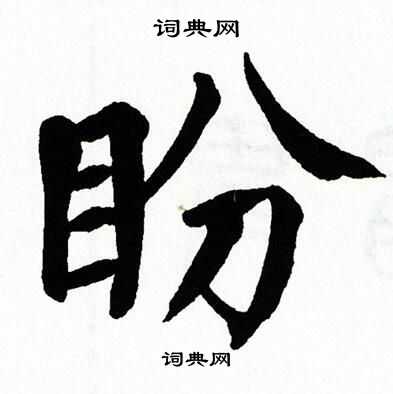 词典网
盼
词典网